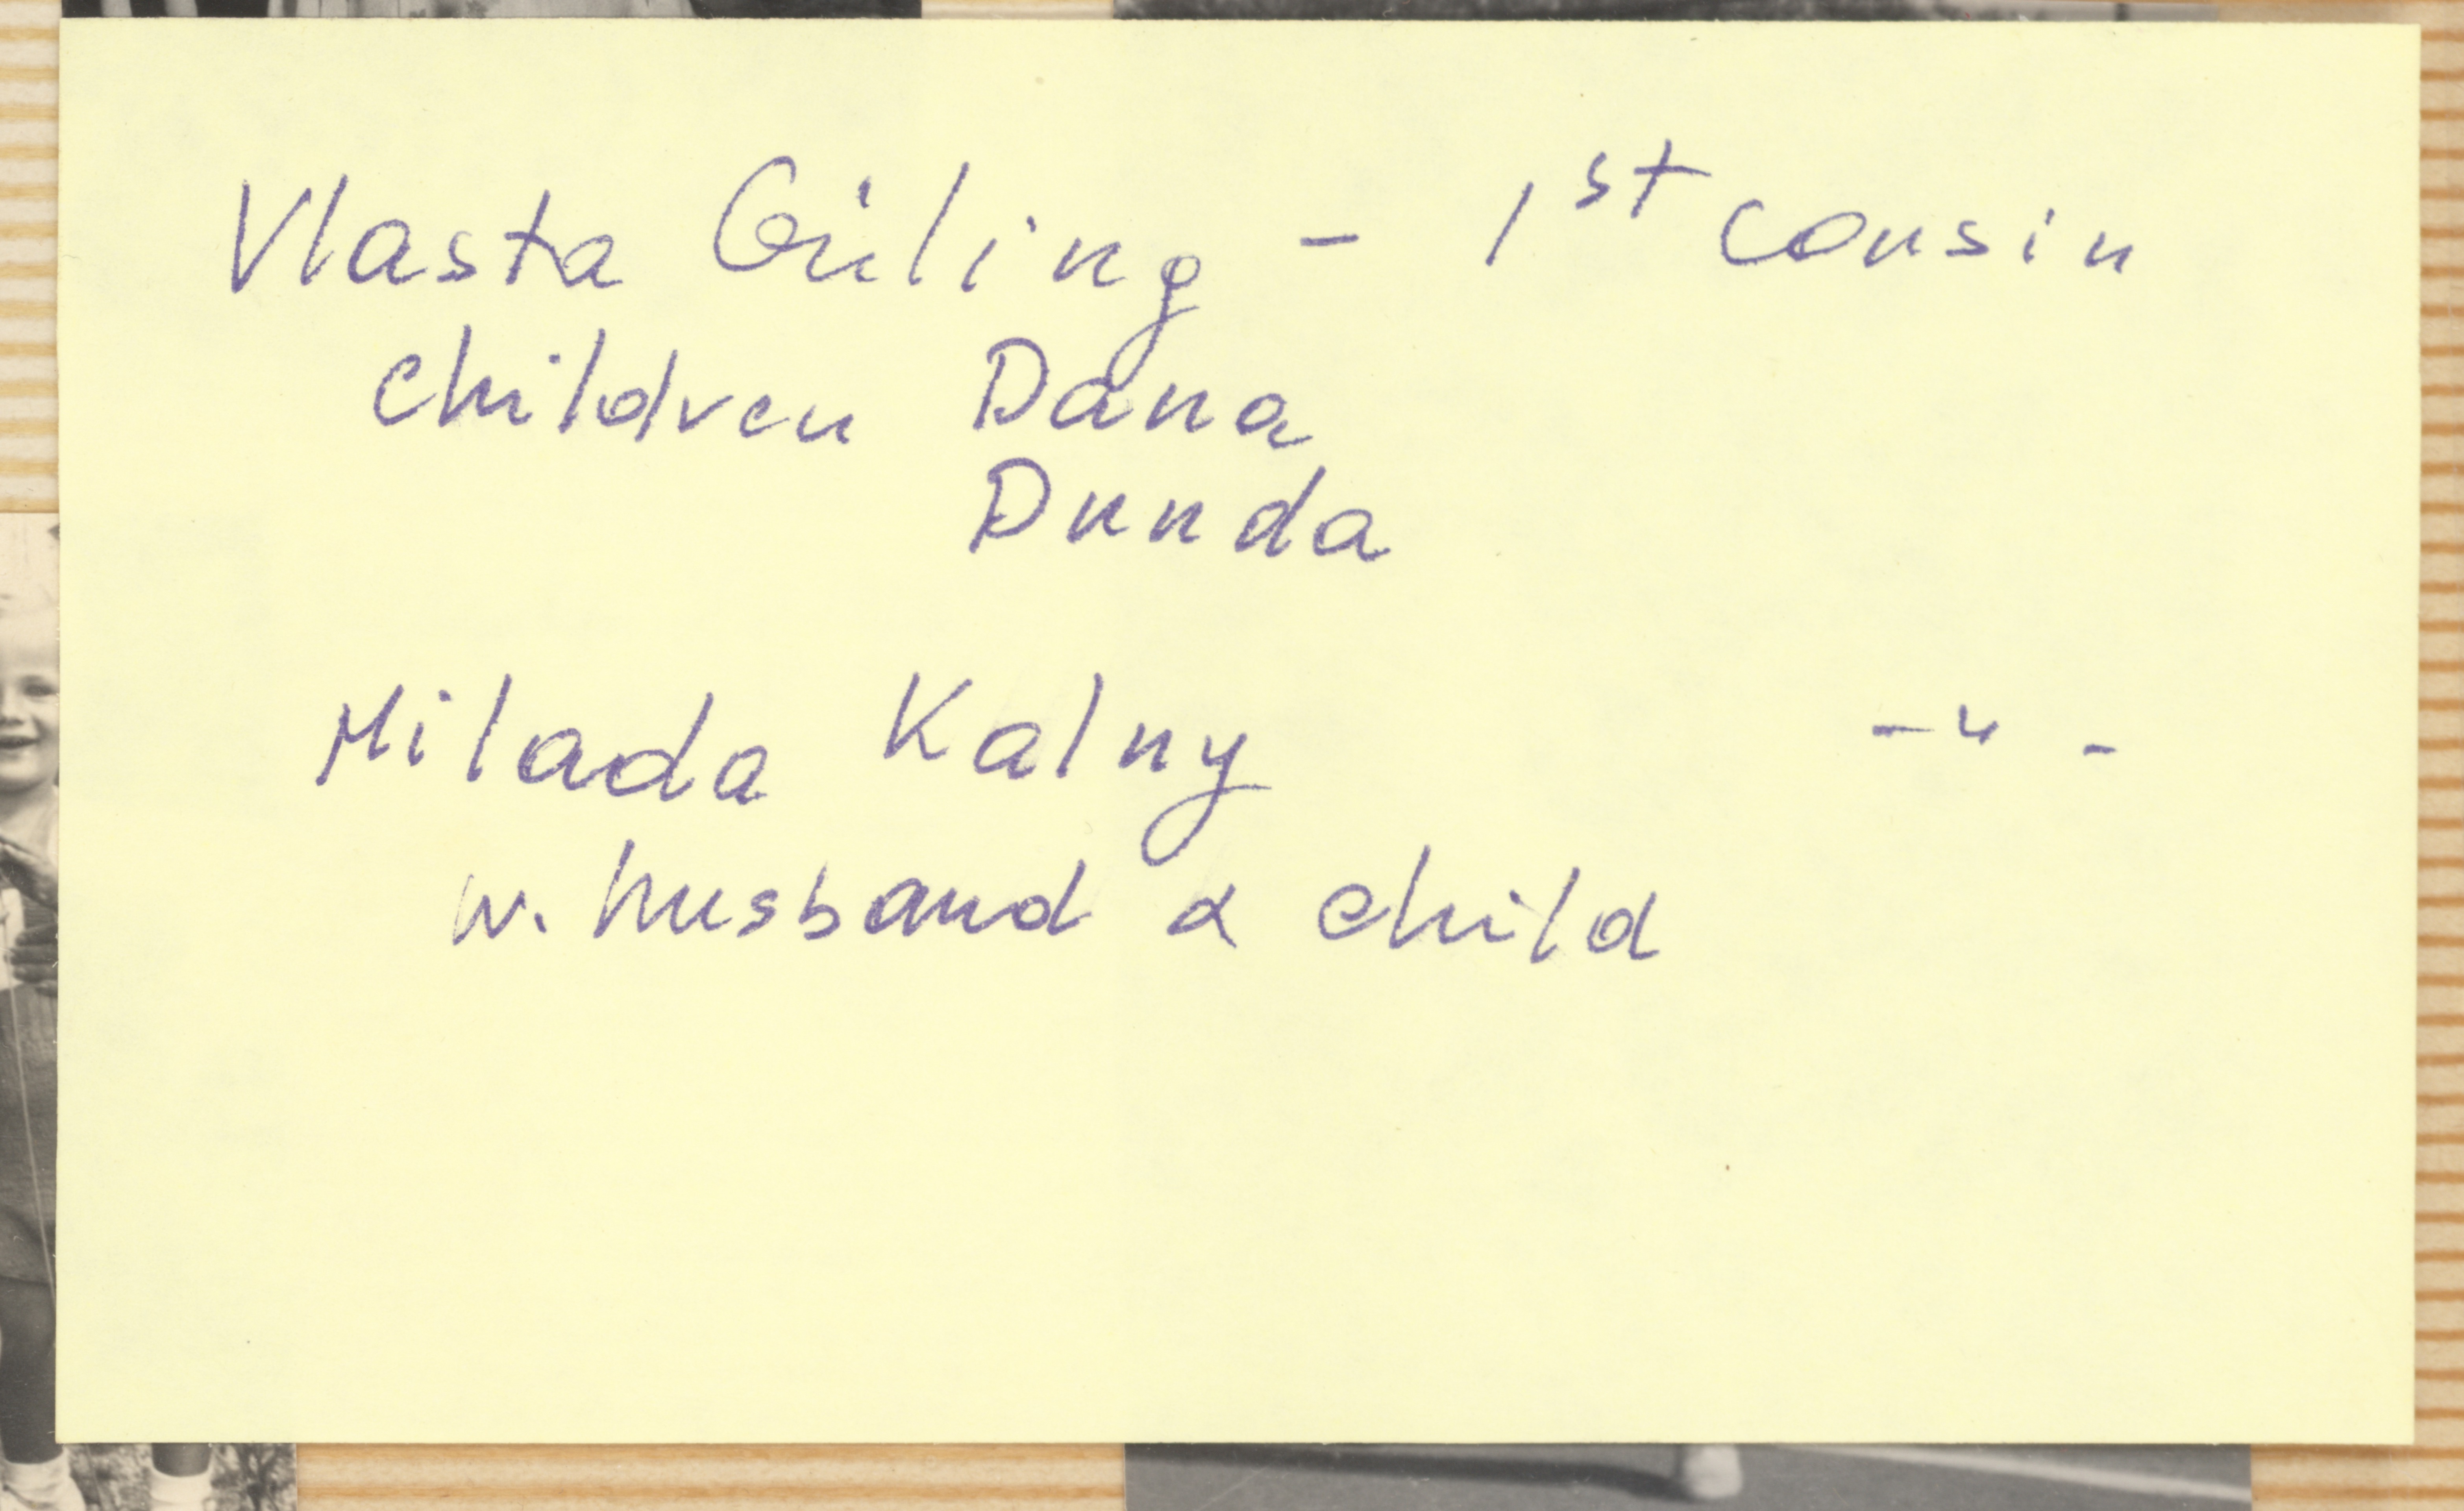 Vlasta Güling - 1st cousin
children Dana
Dunda
Milada Kalny -"-
w. husband & child